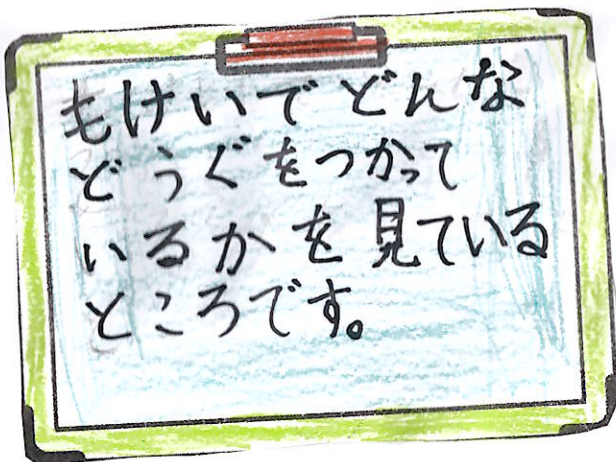 もけいでどんな
どうぐをつかって
いるかを見ている
ところです。